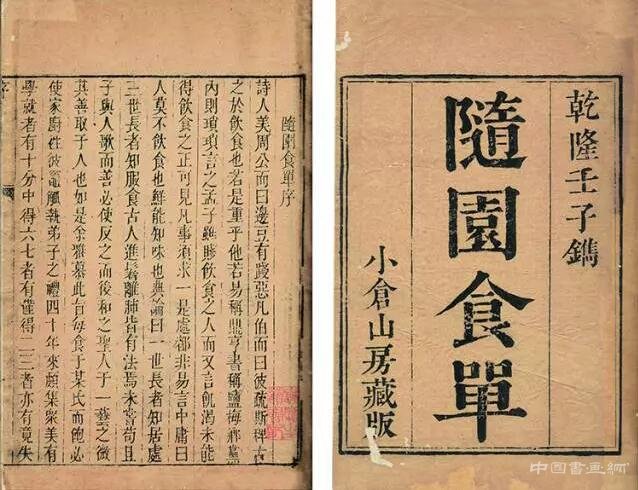 乾隆壬子鐫
隨園食單
小倉山房藏版
隨園食單序
詩人美周公而曰籩豆有踐惡凡伯而曰彼疏斯稗古
之於飲食也若是重乎他若易稱鼎亨書稱鹽梅鄉黨
內則瑣瑣言之孟子雖賤飲食之人而又言飢渴未能
得飲食之正可見凡事須求一是處都非易言中庸曰
人莫不飲食也鮮能知味也典論曰一世長者知居處
三世長者知服食古人進鬐離肺皆有法焉未嘗苟且
子與人歌而善必使反之而後和之聖人于一藝之微
其善取于人也如是余雅慕此旨每食于某氏而飽必
使家廚往彼竈觚執弟子之禮四十年來頗集衆美有
學就者有十分中得六七者有僅得二三者亦有竟失
序
中国書画網